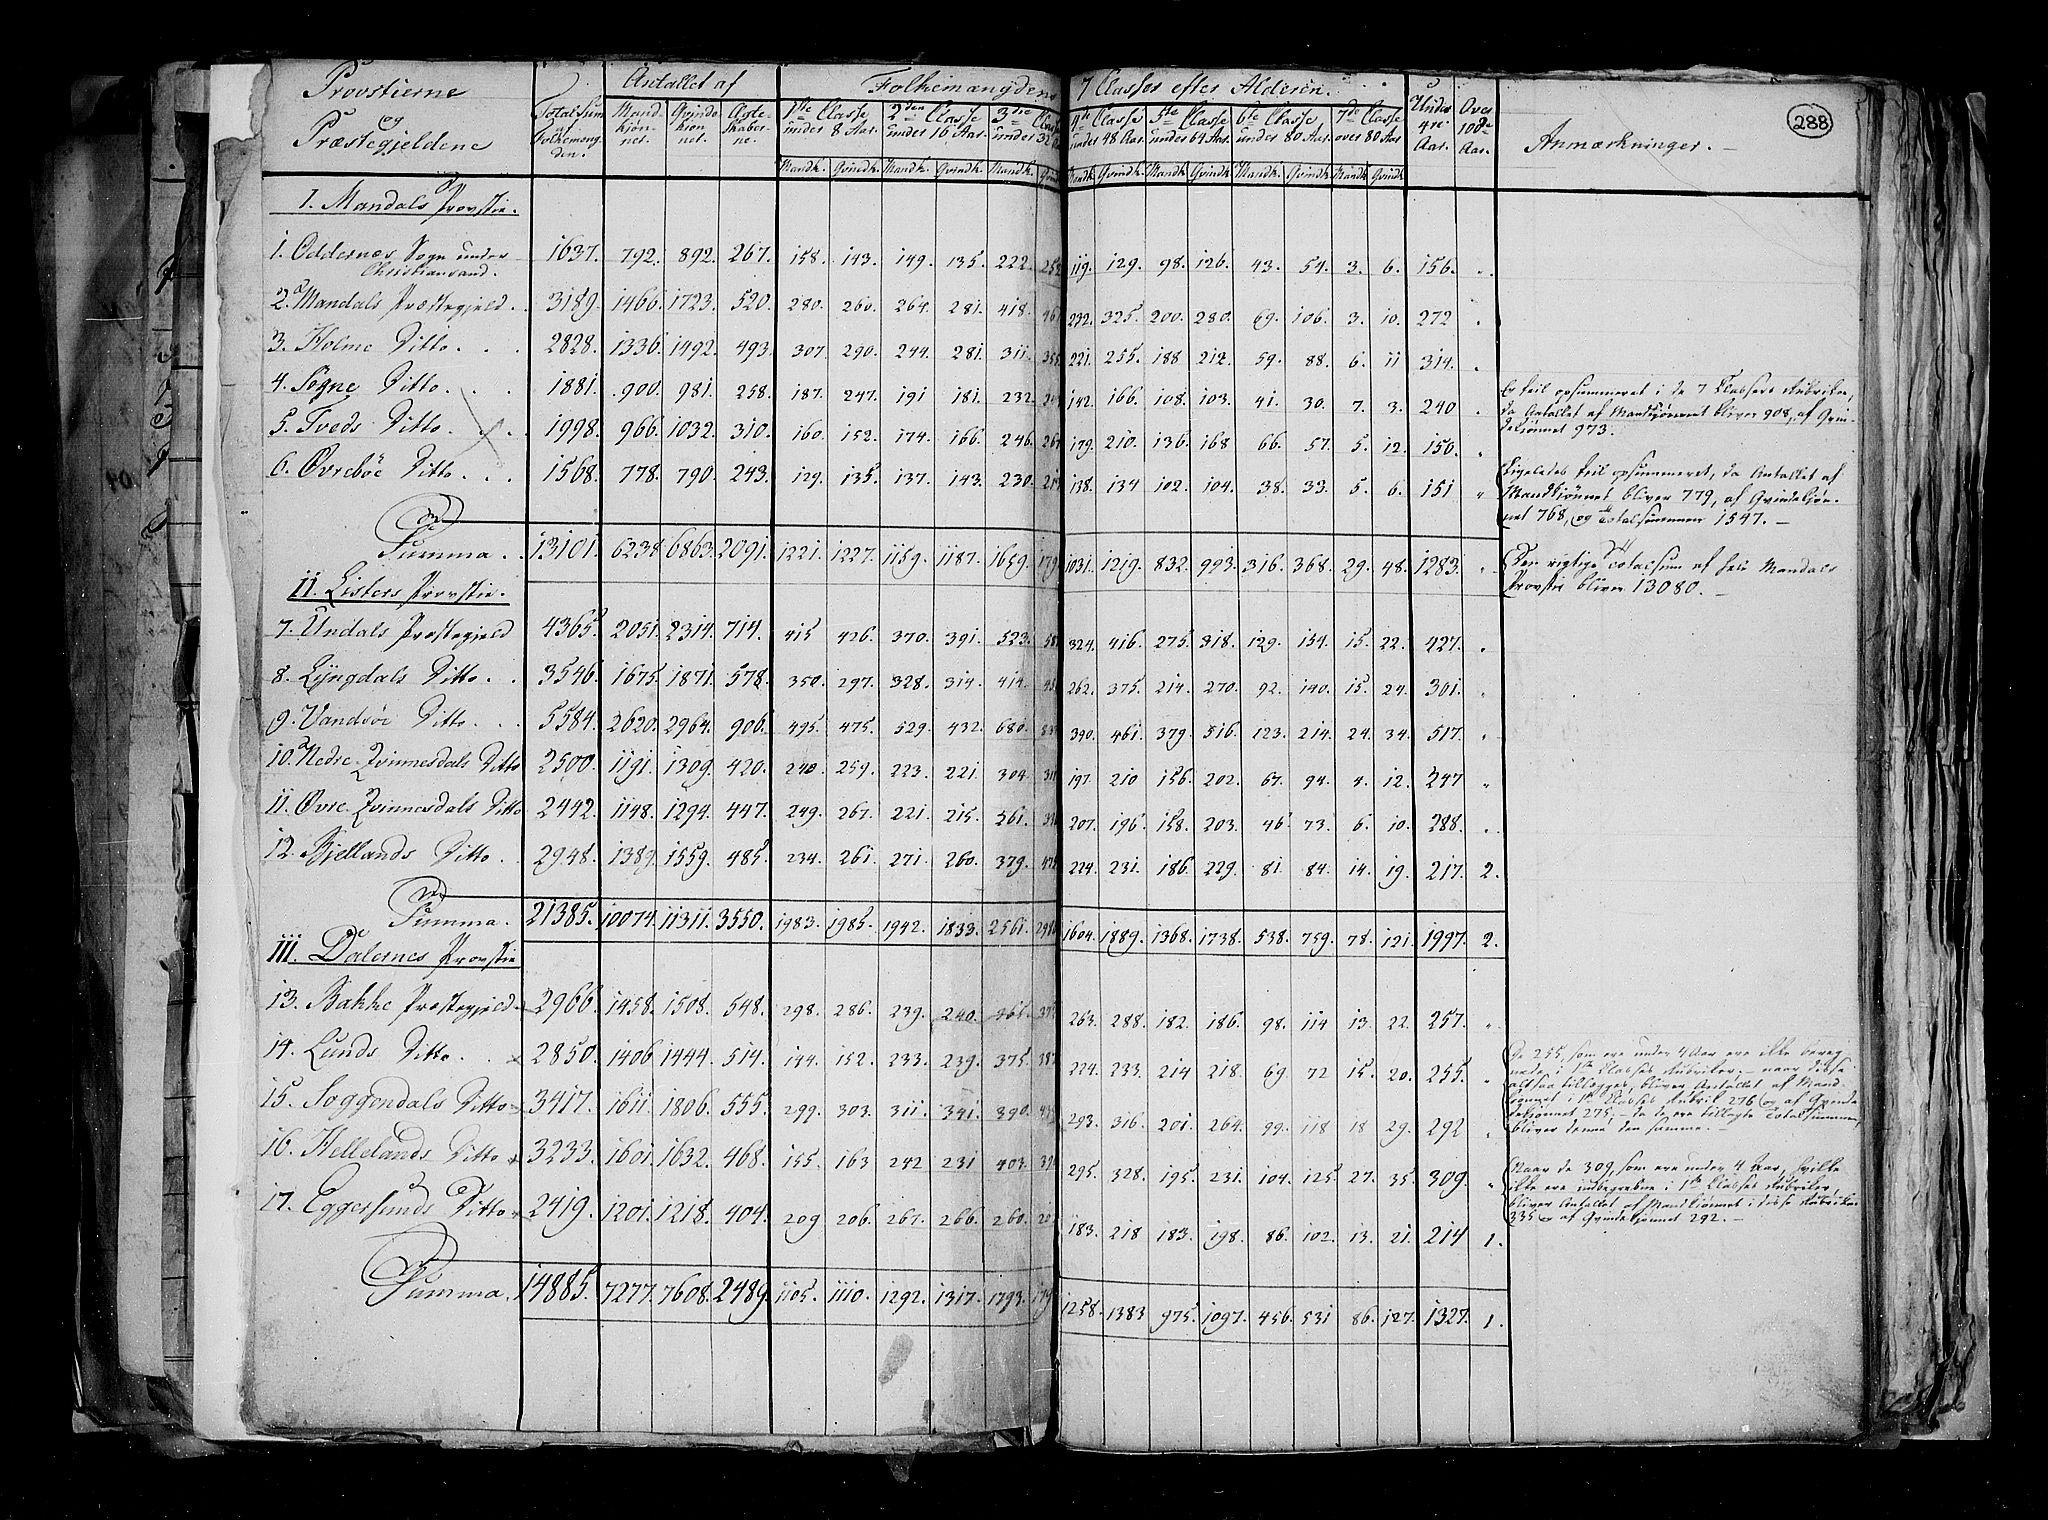 288
Provstierne og Præstegjeldene
Totalsum Folkemængden.
Antallet af
Mandkiønnet. Qvindekiønnet. Ægteskaberne.
Folkemængdens 7 Classer efter Alderen.
1ste Classe under 8 Aar. 2den Classe under 16 Aar. 3die Classe under 32
4de Classe under 48 Aar. 5te Classe under 64 Aar. 6te Classe under 80 Aar. 7de Classe over 80 Aar
Under 4re Aar. Over 100de Aar.
Anmærkninger.
Mandk. Qvindk. Mandk. Qvindk. Mandk. Mandk. Qvindk. Mandk. Qvindk. Mandk. Qvindk. Mandk. Qvindk.
I. Mandals Provstie.
1. Oddernæs Sogn under Christiansand. 1637. 792. 892. 267. 158. 143. 149. 135. 222. 252 119. 129. 98. 126. 43. 54. 3. 6. 156. „
2. Mandals Præstegjeld. 3189. 1466. 1723. 520. 280. 260. 264. 281. 418. 232. 325. 200. 280. 69. 106. 3. 10. 272 „
3. Holme Ditto. 2828. 1336. 1492. 493. 307. 290. 244. 281. 311. 355 221. 255. 188 212. 59. 88. 6. 11 314. „
4. Søgne Ditto. 1881. 900. 981. 258. 187. 247. 191 181. 232. 142. 166. 108. 103. 41. 30. 7. 3. 240 „
5. Tveds Ditto. 1998. 966. 1032. 310. 160. 152. 174. 166. 246. 267 179. 210. 136. 168 66. 57. 5. 12. 150. „
6. Øvreböe Ditto. 1568. 778. 790. 243. 129. 135. 137. 143. 230. 138. 134 102. 104. 38. 33. 5. 6. 151 „
Summa. 13101. 6238. 6863. 2091. 1221. 1227. 1159. 1187. 1659. 1031. 1219. 832. 993. 316. 368. 29. 48. 1283. „
II. Listers Provstie.
7. Undals Præstegjeld 4365. 2051. 2314. 714. 415 426. 370. 391. 523. 324. 416. 275. 318. 129. 154. 15. 22. 427. „
8. Lyngdals Ditto. 3546. 1675. 1871. 578. 350. 297. 328. 314. 414. 262. 375. 214. 270. 92. 140. 15. 24. 301. „
9. Vandsöe Ditto. 5584. 2620. 2964. 906. 495. 475. 529. 432. 680. 390. 461. 379. 516. 123. 214. 24. 34. 517. „
10. Nedre Qvinnesdals Ditto 2500. 1191. 1309. 420. 240. 259. 223. 221. 304. 197. 210 156. 202. 67. 94. 4. 12. 247 „
11. Øvre Qvinnesdals Ditto 2442. 1148. 1294. 447. 249. 267. 221. 215. 261. 207. 196. 158. 203. 46. 73. 6. 10. 288. „
12. Bjellands Ditto. 2948. 1389. 1559. 485. 234. 261. 271. 260. 379. 475 224. 231. 186. 229. 81. 84. 14. 19. 217. 2.
Summa. 21385. 10074. 11311. 3550. 1983. 1985. 1942. 1833. 2561. 1604. 1889. 1368. 1738. 538. 759. 78. 121. 1997. 2.
III. Dalernes Provstie
13. Bakke Præstegjeld. 2966. 1458. 1508. 548. 298. 286. 239. 240. 263. 288. 182. 186. 98. 114 13. 22. 257. „
14. Lunds Ditto. 2850. 1406. 1444. 514. 144. 152. 233. 239. 375. 387 224. 233. 214 218. 69. 72 15. 20. 255. „
15. Soggendals Ditto 3417. 1611. 1806. 555. 299. 303. 311. 341. 390. 293. 316. 201. 264. 99. 118 18 29. 292 „
16. Hellelands Ditto 3233. 1601. 1632. 468. 155. 163 242 231 403. 295. 328. 195. 231. 104. 125. 27. 35. 309. „
17. Eggersunds Ditto 2419. 1201. 1218. 404. 209 206. 267. 266. 260. 183. 218 183. 198. 86. 102. 13. 21. 214 1.
Summa. 14885. 7277. 7608. 2489. 1105. 1110. 1292. 1317. 1793. 1258. 1383 975. 1097. 456. 531 86. 127. 1327. 1.
Er feil opsummeret i de 7 Classers Rubriker,
da Antallet af Mandkjønnet bliver 908, af Qvin-
dekiønnet 973.
Ligeledes feil opsummeret, da Antallet af
Mandkjønnet bliver 779, af Qvindekjøn-
net 768, og Totalsummen 1547. —
Den rigtige Totalsum af hele Mandals
Provstie bliver 13080. —
De 255, som ere under 4 Aar ere ikke bereg-
nede i 1ste Classes Rubriker; — naar disse
altsaa tillægges, bliver Antallet af Mand-
kjønnet i 1ste Classes Rubrik 276 og af Qvinde-
kjønnet 275;
bliver denne den samme. —
Naar de 309, som ere under 4 Aar, hvilke
ikke ere indbegrebne i 1ste Classes Rubriker,
bliver Antallet af Mandkjønnet i disse Rubriker
335 og af Qvindekjønnet 292. —